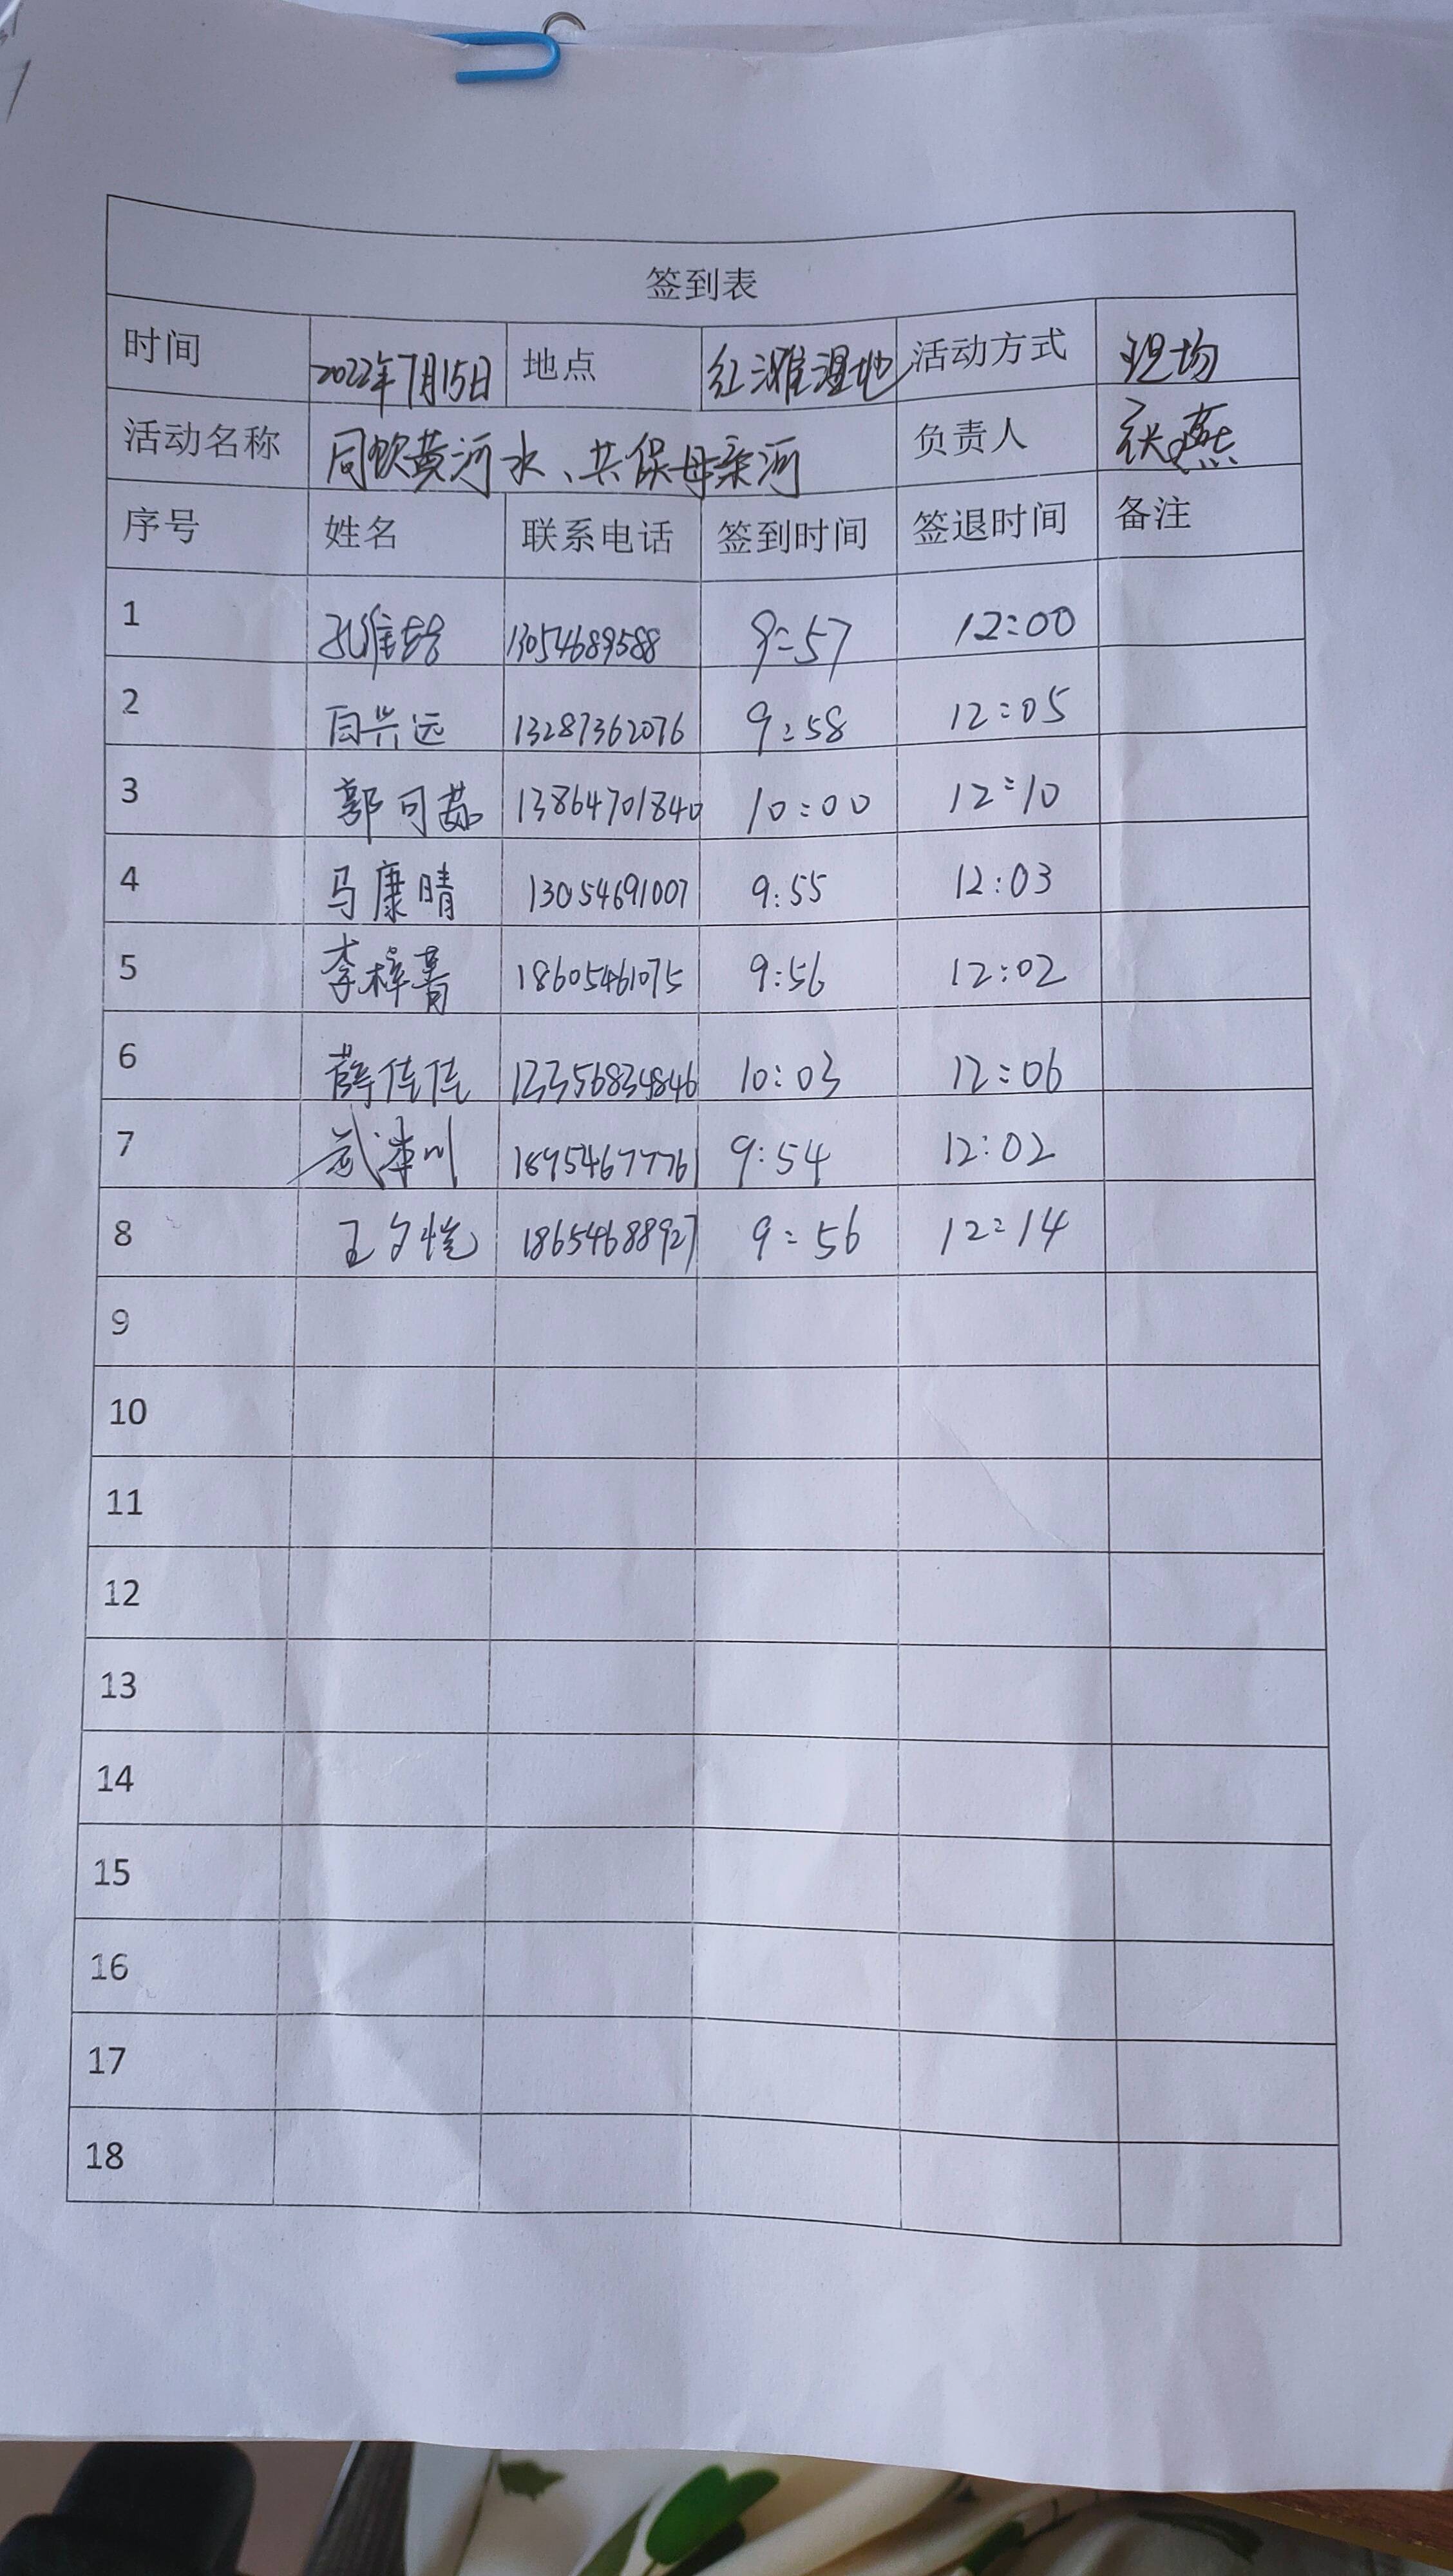 签到表
时间 2022年7月15日 地点 红滩湿地 活动方式 现场
活动名称 同饮黄河水、共保母亲河 负责人 张燕
序号 姓名 联系电话 签到时间 签退时间 备注
1 13054689588 9:57 12:00
2 白兴远 13287362076 9:58 12:05
3 郭可茹 13864701840 10:00 12:10
4 马康晴 13054691007 9:55 12:03
5 李梓菁 18605461075 9:56 12:02
6 薛佳佳 10:03 12:06
7 武津川 18954677761 9:54 12:02
8 18654688927 9:56 12:14
9
10
11
12
13
14
15
16
17
18